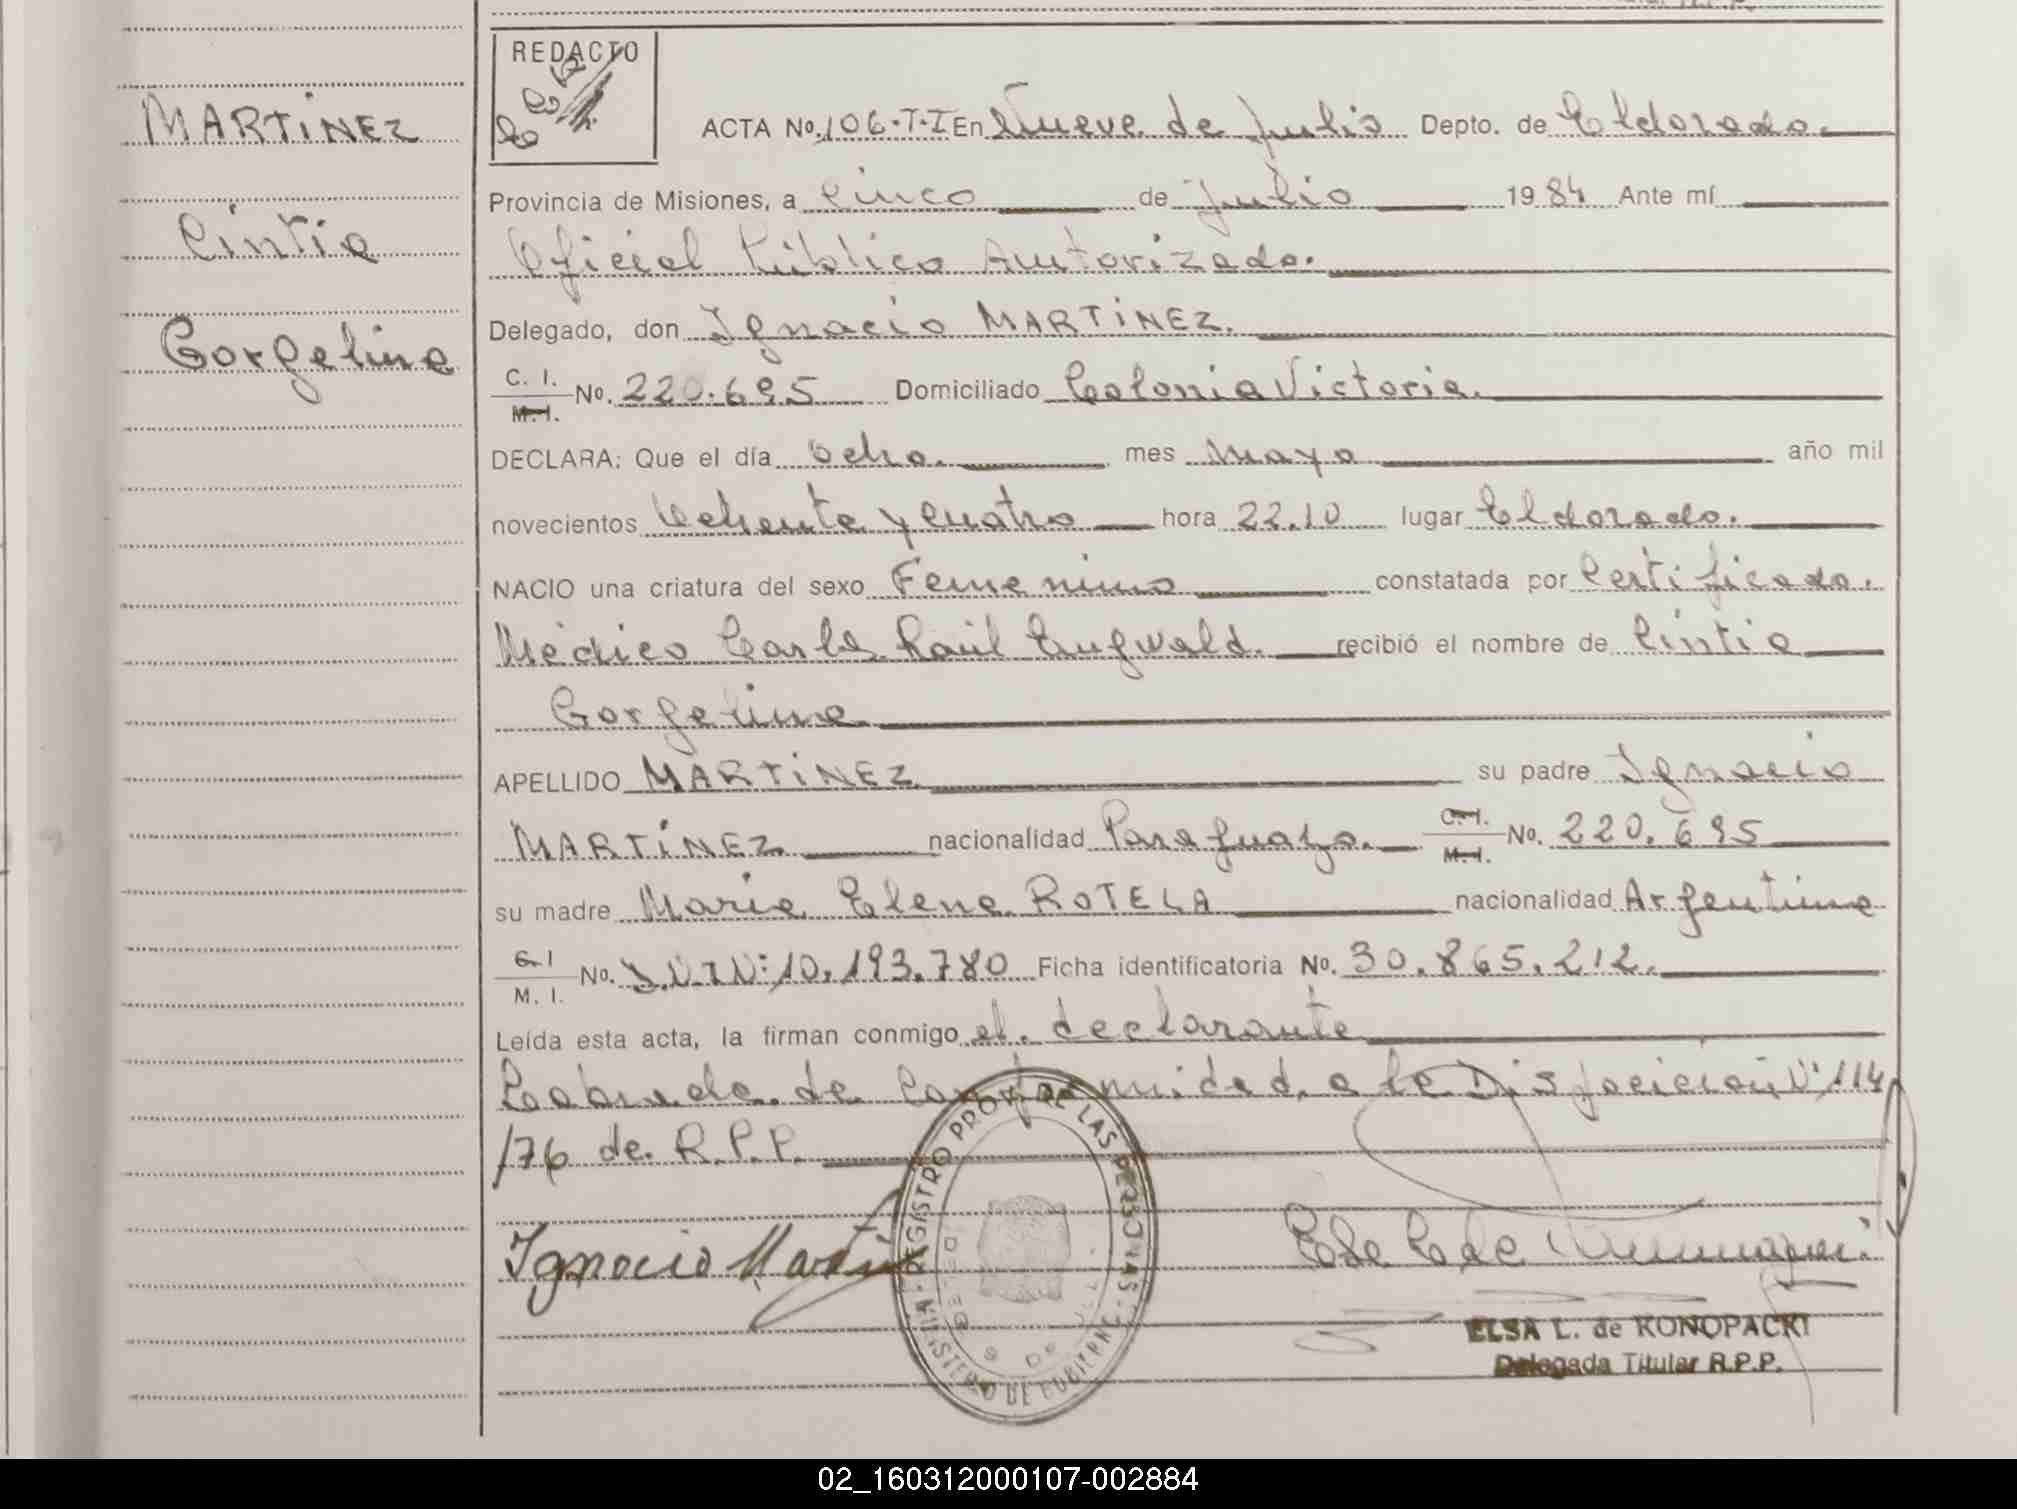 MARTINEZ
Cintia
Gorgelina
REDACTO
ACTA No. 106-T-I En Nueve de Julio Depto. de Eldorado.
Provincia de Misiones, a cinco de Julio 1984 Ante mí
Oficial Público Autorizado.
Delegado, don Ignacio MARTINEZ.
C. I. No. 220.695 Domiciliado Colonia Victoria.
M. I.
DECLARA: Que el día ocho. mes mayo año mil
novecientos Ochenta y cuatro hora 22.10 lugar Eldorado.
NACIO una criatura del sexo Femenino constatada por Certificado.
Médico Carlos Raúl recibió el nombre de Cintia
Gorgelina
APELLIDO MARTINEZ su padre Ignacio
MARTINEZ nacionalidad Paraguayo. C. I. No. 220.695
M. I.
su madre Maria Elena ROTELA nacionalidad Argentina
C. I No. D.N.I N: 10.193.780 Ficha identificatoria No. 30.865.212.
M. I.
Leída esta acta, la firman conmigo el. declarante
Labrada. de Conformidad. a la Disposición N° 114
/76 de. R.P.P.
Ignacio Martinez
REGISTRO PROV. DE LAS PERSONAS
MINISTERIO DE GOBIERNO
ELSA L. de KONOPACKI
Delegada Titular R.P.P.
02_160312000107-002884